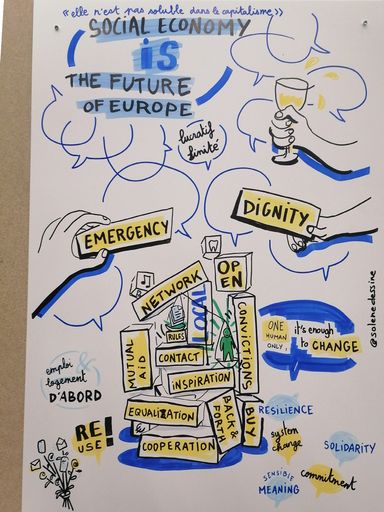 « elle n'est pas soluble dans le capitalisme »
SOCIAL ECONOMY
iS
THE FUTURE
OF EUROPE
lucratif
finité
EMERGENCY
DIGNITY
NETWORK
OP
EN
LOCAL
RULES
CONVICTIONS
MUTUAL
AID
CONTACT
iNSPIRATION
EQUALIZATION
BACK &
FORTH
BUY
COOPERATION
ONE
HUMAN
ONLY,
it's enough
to CHANGE
@solenedessine
emploi
&
logement
D'ABORD
RE!
USE!
RESILIENCE
system
change
SOLIDARITY
SENSIBLE
MEANING
commitment